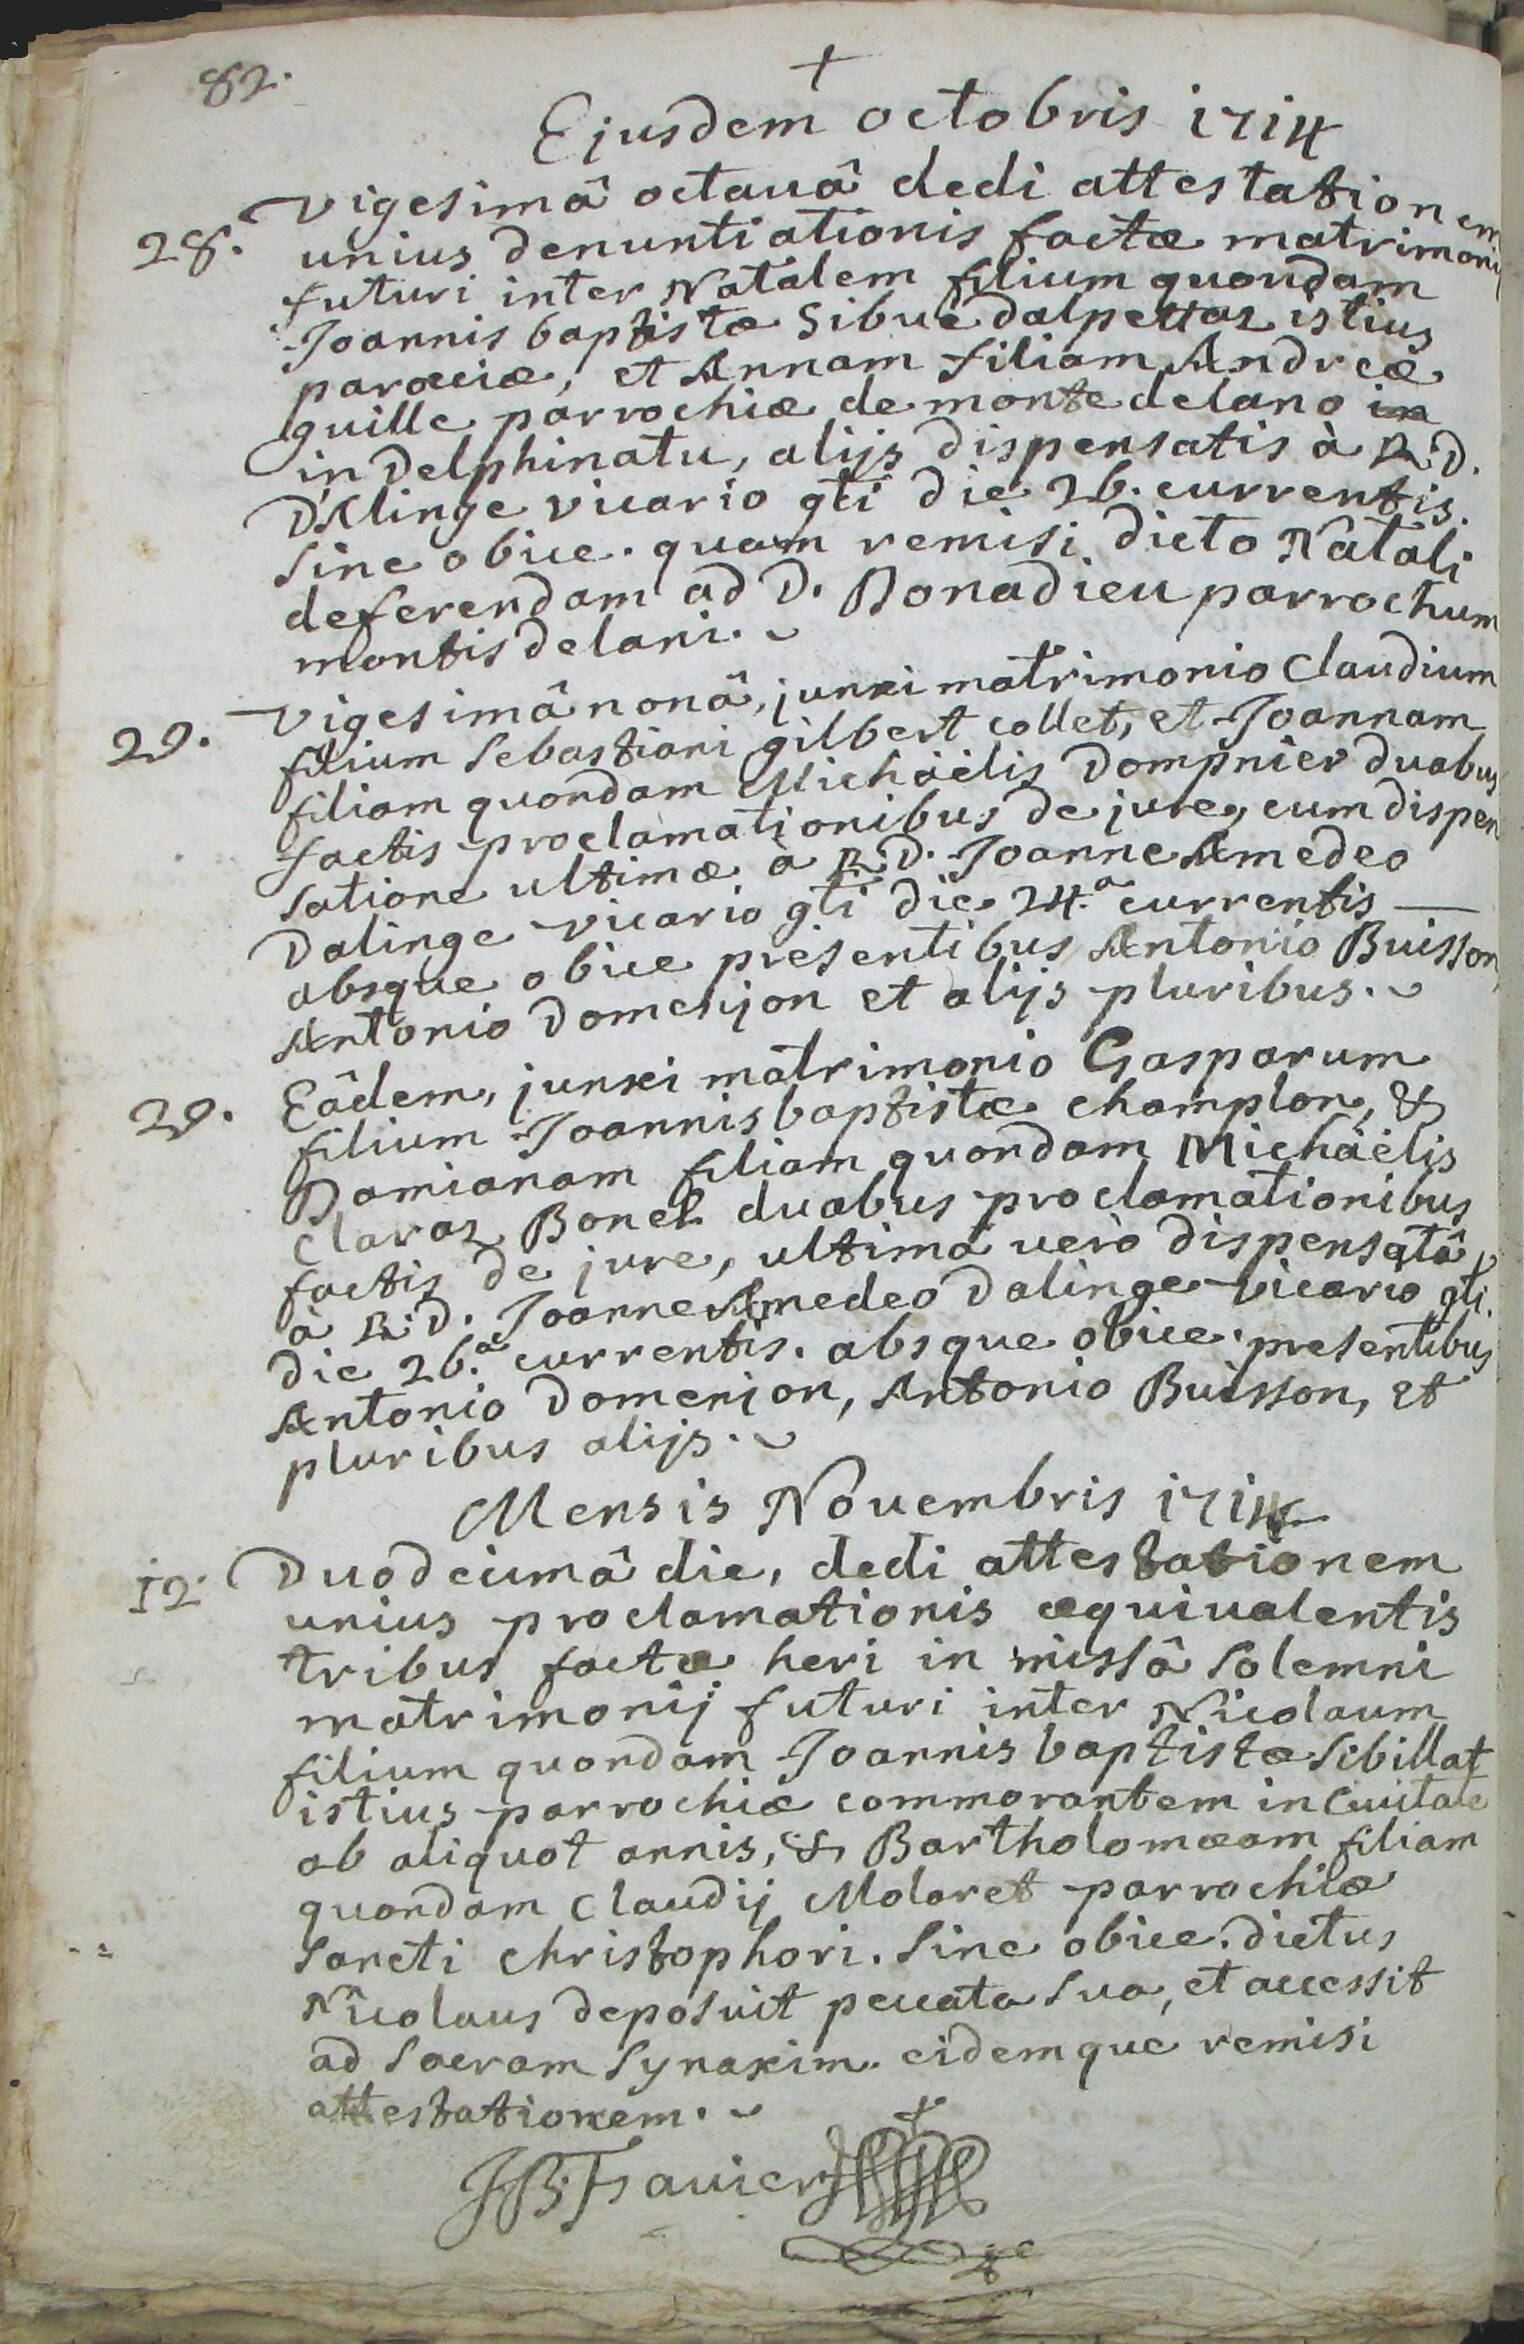 82.
+
Ejusdem octobris 1714
28. Vigesimâ octauâ dedi attestationem
unius denuntiationis factæ matrimonij
futuri inter Natalem filium quondam
Joannis baptistæ Sibuë dalpettaz istius
parœciæ, et Annam filiam Andreæ
guille parrochiæ de monte delano in
in Delphinatu, alijs dispensatis à R.D.
D'Alinge vicario gti die 26. currentis.
Sine obice. quam remisi dicto Natali
deferendam ad D. Bonadieu parrochum
montis delani.
29. Vigesimâ nonâ, junxi matrimonio Claudium
filium Sebastiani gilbert collet, et Joannam
filiam quondam Michäelis Dompnier duabus
factis proclamationibus de jure, cum dispen
satione ultimæ à R.D. Joanne Amedeo
Dalinge vicario gti die 24.a currentis
absque obice presentibus Antonio Buisson,
Antonio Domenjon et alijs pluribus.
29. Eâdem, junxi matrimonio Gasparum
filium Joannis baptistæ champlon, &
Damianam filiam quondam Michäelis
Claraz Bonel duabus proclamationibus
factis de jure, ultimâ verò dispensatâ
à R.D. Joanne Amedeo Dalinge vicario gti.
die 26.a currentis. absque obice. presentibus
Antonio Domenjon, Antonio Buisson, et
pluribus alijs.
Mensis Nouembris 1714
12. Duodecimâ die, dedi attestationem
unius proclamationis æquiualentis
tribus factæ heri in missâ solemni
matrimonij futuri inter Nicolaum
filium quondam Joannis baptistæ Sibillat
istius parrochiæ commorantem in Ciuitate
ab aliquot annis, & Bartholomæam filiam
quondam Claudij Molaret parrochiæ
Sancti Christophori. Sine obice. dictus
Nicolaus deposuit peccata sua, et accessit
ad Sacram Synaxim. eidemque remisi
attestationem.